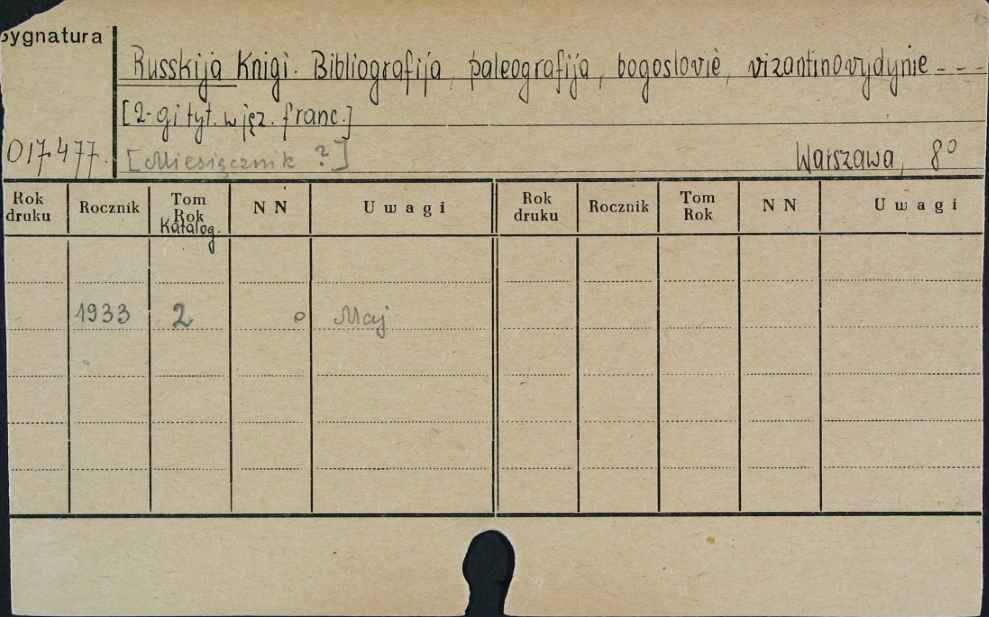 Sygnatura
Russkija Knigi. Bibliografija, paleografija, bogoslovie, vizantinovydynie - - -
[2-gi tyt. w jęz. franc.]
017.477. [Miesięcznik ?] Warszawa, 8°
Rok druku Rocznik Tom Rok Katalog. N N Uwagi Rok druku Rocznik Tom Rok N N Uwagi
1933 2 Maj